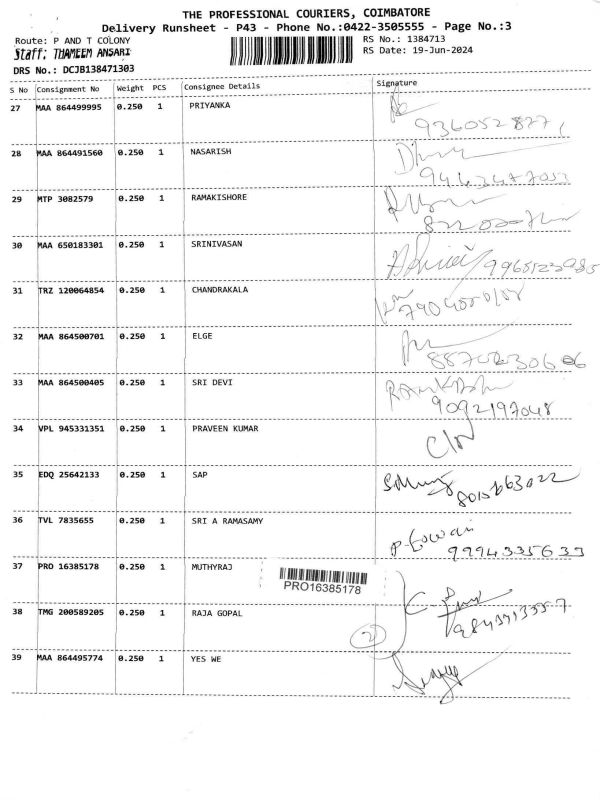 THE PROFESSIONAL COURIERS, COIMBATORE
Delivery Runsheet - P43 - Phone No.:0422-3505555 - Page No.:3
Route: P AND T COLONY RS No.: 1384713
Staff: THAMEEM ANSARI RS Date: 19-Jun-2024
DRS No.: DCJB138471303
S No Consignment No Weight PCS Consignee Details Signature
27 MAA 864499995 0.250 1 PRIYANKA
28 MAA 864491560 0.250 1 NASARISH
29 MTP 3082579 0.250 1 RAMAKISHORE
30 MAA 650183301 0.250 1 SRINIVASAN
31 TRZ 120064854 0.250 1 CHANDRAKALA
32 MAA 864500701 0.250 1 ELGE
33 MAA 864500405 0.250 1 SRI DEVI
9092197048
34 VPL 945331351 0.250 1 PRAVEEN KUMAR
35 EDQ 25642133 0.250 1 SAP
36 TVL 7835655 0.250 1 SRI A RAMASAMY
9994335633
37 PRO 16385178 0.250 1 MUTHYRAJ
PRO16385178
38 TMG 200589205 0.250 1 RAJA GOPAL
2
39 MAA 864495774 0.250 1 YES WE